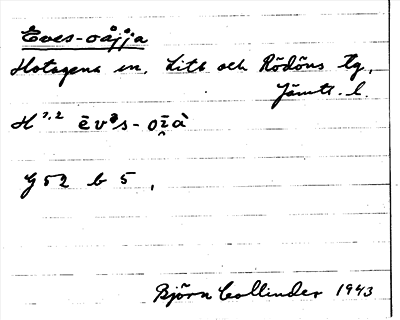 Eves-oåjja
Hotagens sn. Lits och Rödöns tg,
Jämtl. l.
H 1,2 ēvəs-oi̯à
G 52 b 5,
Björn Collinder 1943